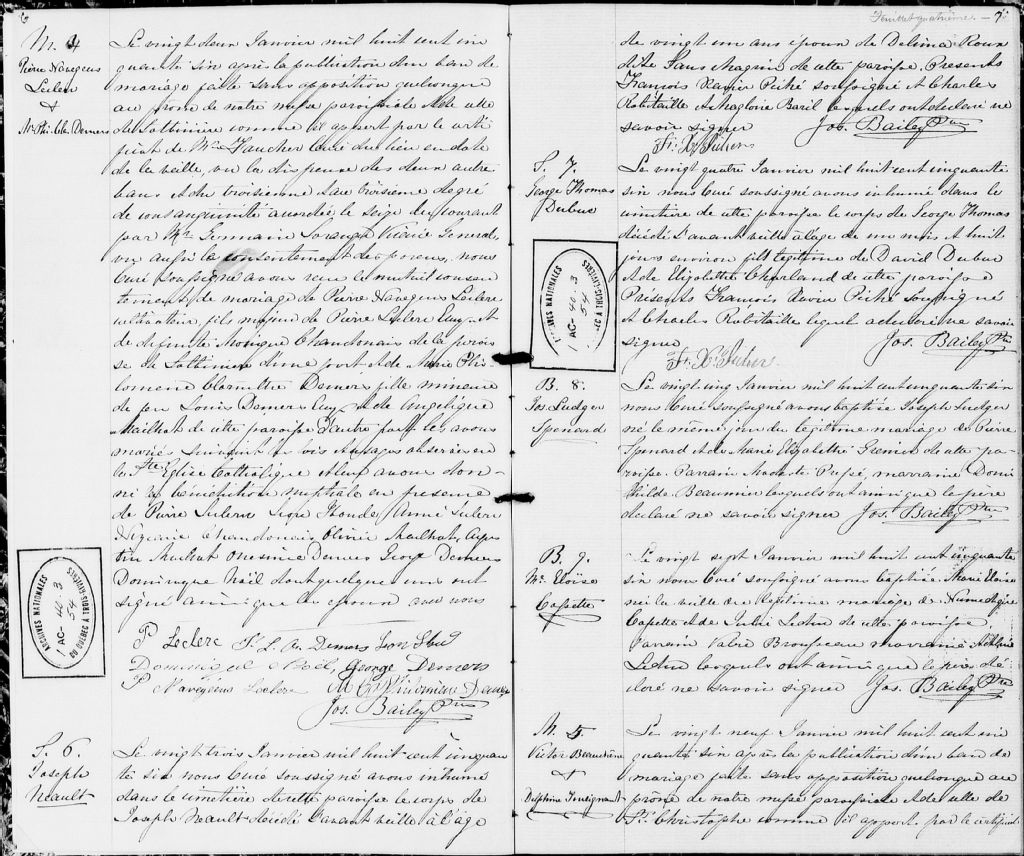 6
M. 4
Pierre Navegeus
Leclerc
&
Me. Philo. Cla. Demers
Le vingt deux Janvier mil huit cent cin
quante six après la publication d'un ban de
mariage faite sans opposition quelconque
au prône de notre messe paroissiale & de celle
de Lotbinière comme il appert par le certi
ficat de Mr. Faucher Curé du lieu en date
de la veille, vu la dispense des deux autres
bans et du troisième au troisième degré
de consanguinité accordée le seize du courant
par Mr. Germain Vicaire Général,
vu aussi le consentement des parens, nous
Curé soussigné avons reçu le mutuel consen
tement de mariage de Pierre Navegeus Leclerc
cultivateur, fils majeur de Pierre Leclerc Cuy. et
de défunte Monique Chandonais de la parois
se de Lotbinière d'une part & de Marie Phi-
lomene Clarinthe Demers fille mineure
de feu Louis Demers Cuy. & de Angelique
Mailhot de cette paroisse d'autre part les avons
mariés suivant les lois & usages observés en
la Ste. Eglise Catholique & leur avons don-
né la bénédiction nuptiale en présence
de Pierre Leclerc Aimé Leclerc
Chandonais Olivier Mailhot, Augus
tin Mailhot Onesime Demers George Demers
Dominique Noël dont quelques uns ont
signé ainsi que les époux avec nous
P Leclerc F. L. Demers
Dominique Noël, George Demers
P Navegeus Leclerc M C Philomene Demers
Jos. Bailey Ptre
S. 6.
Joseph
Neault
Le vingt trois Janvier mil huit-cent cinquan
te six nous Curé soussigné avons inhumé
dans le cimetière de cette paroisse le corps de
Joseph Neault décédé l'avant veille à l'âge
ARCHIVES NATIONALES
1 AC- 40. 3
54
DU QUEBEC A TROIS-RIVIERES
Feuillet quatrième. — 7
de vingt un ans époux de Delima Roux
dite Sans chagrin de cette paroisse. Présents
François Xavier Piché soussigné & Charles
Robitaille & Magloire Baril lesquels ont déclaré ne
savoir signer Jos. Bailey Ptre
Fr. X. Picher
S. 7.
George Thomas
Dubuc
Le vingt quatre Janvier mil huit cent cinquante
six nous Curé soussigné avons inhumé dans le
cimetière de cette paroisse le corps de George Thomas
décédé l'avant veille à l'âge de un mois & huit
jours environ fils légitime de David Dubuc
& de Elizabeth Charland de cette paroisse
Présents François Xavier Piché soussigné
& Charles Robitaille lequel a déclaré ne savoir
signer Jos. Bailey Ptre
Fr. X. Picher
ARCHIVES NATIONALES
1 AC- 40. 3
54
DU QUEBEC A TROIS-RIVIERES
B. 8.
Jos. Ludger
Spenard
Le vingt cinq Janvier mil huit cent cinquante six
nous Curé soussigné avons baptisé Joseph Ludger
né le même jour du légitime mariage de Pierre
Spenard & de Marie Elizabeth Grenier de cette pa-
roisse. Parrain Modeste marraine Domi
thilde Beaumier lesquels ont ainsi que le père
déclaré ne savoir signer Jos. Bailey Ptre
B. 9.
Me. Eloïse
Capette
Le vingt sept Janvier mil huit cent cinquante
six nous Curé soussigné avons baptisé Marie Eloise
née la veille du légitime mariage de
Capette & de Julie de cette paroisse.
Parrain Brousseau marraine
lesquels ont ainsi que le père dé-
claré ne savoir signer Jos. Bailey Ptre
M. 5
Victor Beaudoin
&
Delphine
Le vingt neuf Janvier mil huit cent cin
quante six après la publication d'un ban de
mariage faite sans opposition quelconque au
prône de notre messe paroissiale & de celle de
St. Christophe comme il appert par le certificat